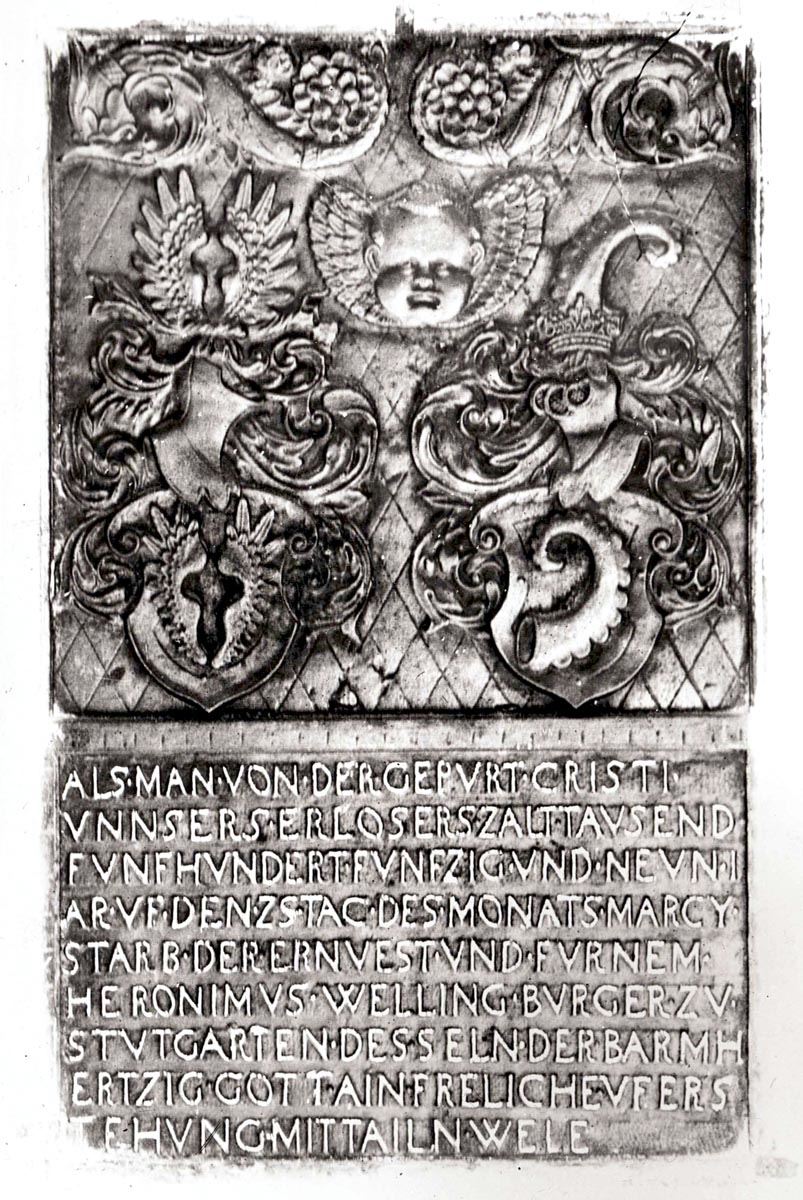 ALS·MAN·VON·DER·GEPVRT·CRISTI·
VNNSERS·ERLOSERS·ZALT·TAVSEND
FVNFHVNDERT·FVNFZIG·VND·NEVN·I
AR·VF·DEN·ZS·TAC·DES·MONATS·MARCY·
STARB·DER·ERNVEST·VND·FVRNEM·
HERONIMVS·WELLING·BVRGER·ZV·
STVTGARTEN·DES·SELN·DER·BARMH
ERTZIG·GOTT·AIN·FRELICHE·VFERS
TEHVNG·MITTAILN·WELE